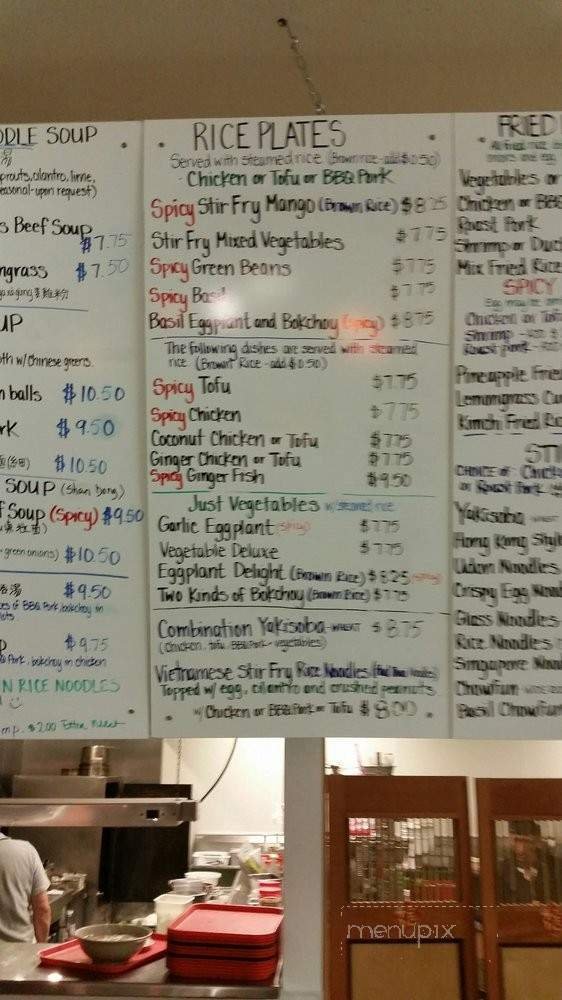 ODLE SOUP
prouts, cilantro, lime,
easonal-upon request)
s Beef Soup
$7.75
ngrass $7.50
UP
oth w/Chinese greens.
n balls $10.50
rk $9.50
$10.50
SOUP (Shan Dong)
f Soup (Spicy) $9.50
green onions) $10.50
$9.50
es of BBQ Pork, bokchoy in
P $9.75
Q Pork, bokchoy in chicken
N RICE NOODLES
mp. $2.00 Extra
RICE PLATES
Served with steamed rice (Brown rice-add $0.50)
Chicken or Tofu or BBQ Pork
Spicy Stir Fry Mango (Brown Rice) $8.25
Stir Fry Mixed Vegetables $7.75
Spicy Green Beans $7.75
Spicy Basil $7.75
Basil Eggplant and Bokchoy (spicy) $8.75
The following dishes are served with steamed
rice (Brown Rice-add $0.50)
Spicy Tofu $7.75
Spicy Chicken $7.75
Coconut Chicken or Tofu $7.75
Ginger Chicken or Tofu $7.75
Spicy Ginger Fish $9.50
Just Vegetables w/steamed rice
Garlic Eggplant (spicy) $7.75
Vegetable Deluxe $7.75
Eggplant Delight (Brown Rice) $8.25 (spicy)
Two Kinds of Bokchoy (Brown Rice) $7.75
Combination Yakisoba-WHEAT $8.75
(Chicken, tofu, BBQ Pork + vegetables)
Vietnamese Stir Fry Rice Noodles (Pad Thai Noodles)
Topped w/ egg, cilantro and crushed peanuts
w/ Chicken or BBQ Pork or Tofu $8.00
FRIED
Vegetables or
Chicken or BB
Roast Pork
Shrimp or Duc
Mix Fried Rice
SPICY
Chicken or Tof
Shrimp
Roast pork
Pineapple Frie
Lemongrass Cu
Kimchi Fried Ric
STI
CHOICE of: Chick
or Roast Pork
Yakisoba WHEAT
Hong Kong Styl
Udon Noodles
Crispy Egg Nood
Glass Noodles
Rice Noodles
Singapore Nood
Chowfun
Basil Chowfun
menupix